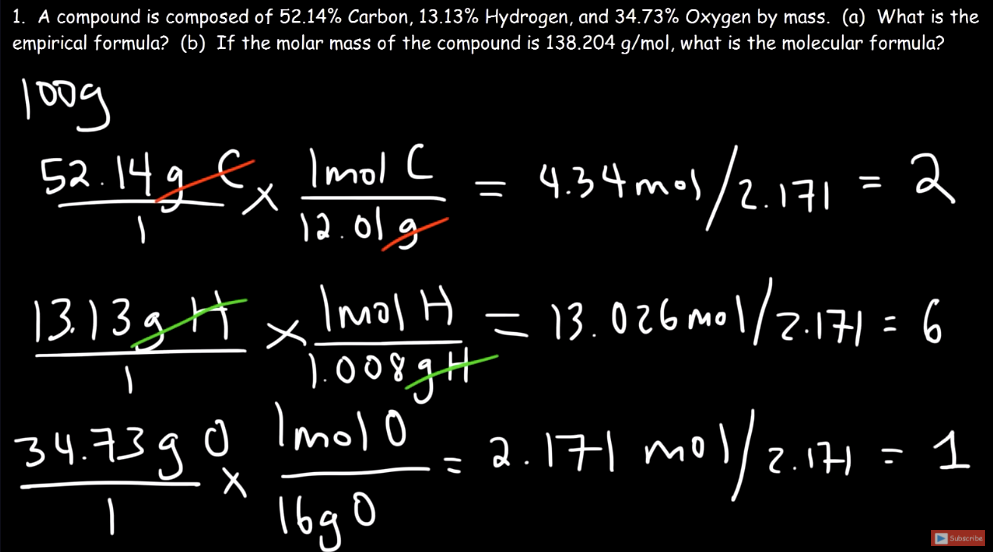 1. A compound is composed of 52.14% Carbon, 13.13% Hydrogen, and 34.73% Oxygen by mass. (a) What is the
empirical formula? (b) If the molar mass of the compound is 138.204 g/mol, what is the molecular formula?
100g
52.14 g C / 1 × 1 mol C / 12.01 g = 4.34 mol / 2.171 = 2
13.13 g H / 1 × 1 mol H / 1.008 g H = 13.026 mol / 2.171 = 6
34.73 g O / 1 × 1 mol O / 16 g O = 2.171 mol / 2.171 = 1
Subscribe